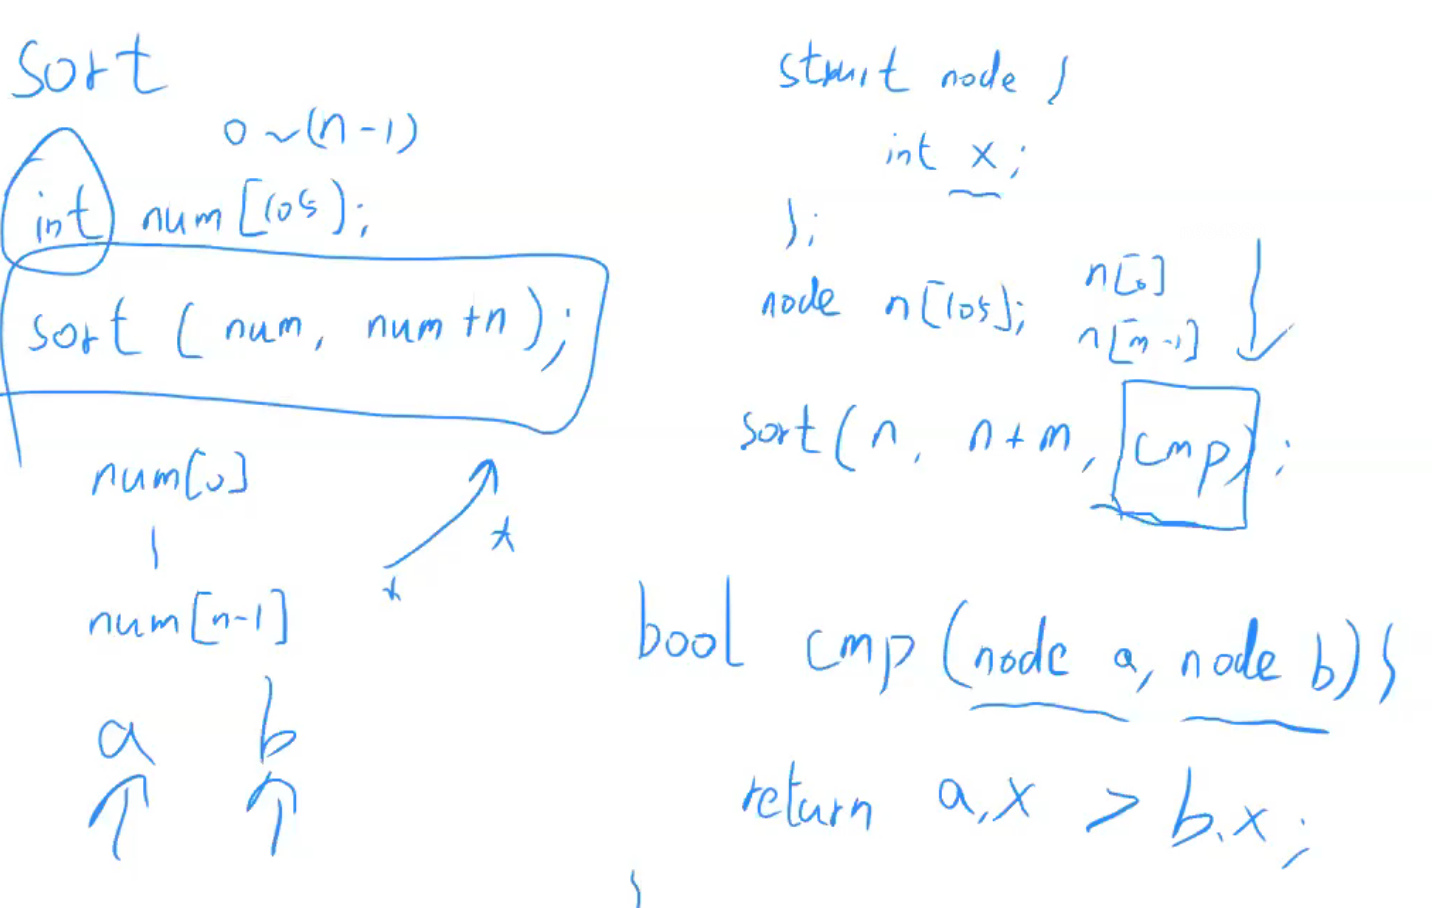 sort
0~(n-1)
int num[105];
sort ( num, num+n );
num[0]
num[n-1]
a b
struct node {
int x;
};
node n[105];
n[0]
n[m-1]
sort(n, n+m, cmp);
bool cmp(node a, node b){
return a.x > b.x;
}